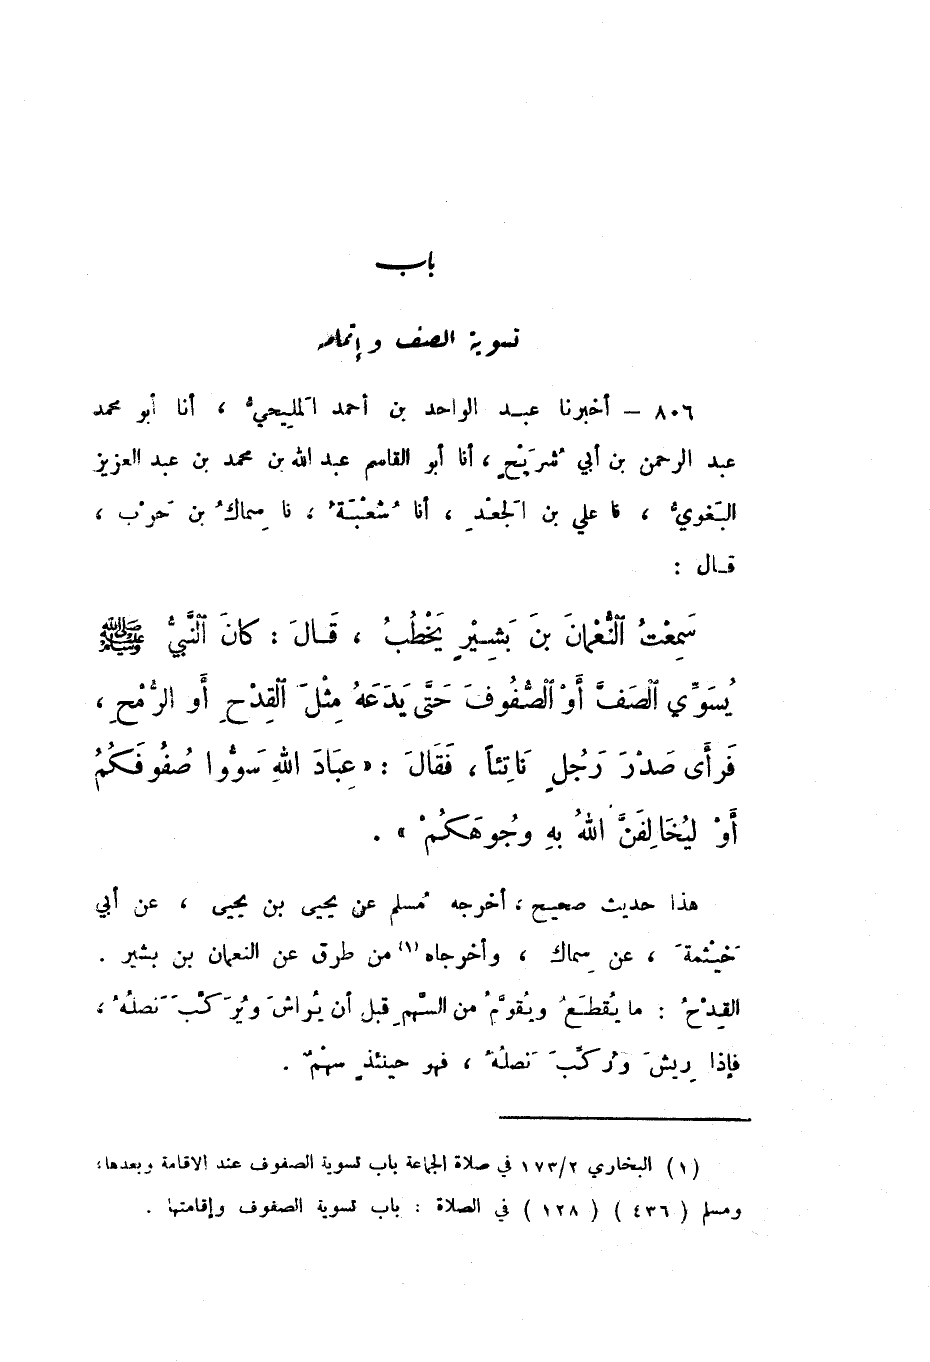 باب
تسوية الصف وإتمامه
٨٠٦ – أخبرنا عبد الواحد بن أحمد المَليحيُّ ، أنا أبو محمد
عبد الرحمن بن أبي شُرَيْحٍ ، أنا أبو القاسم عبد الله بن محمد بن عبد العزيز
البَغويُّ ، نا علي بن الجَعْدِ ، أنا شُعْبَةُ ، نا سِماكُ بن حَرْب ،
قال :
سَمِعْتُ ٱلنُّعْمَانَ بنَ بَشِيْرٍ يَخْطُبُ ، قَالَ : كانَ ٱلنَّبيُّ ﷺ
يُسَوِّي ٱلصَفَّ أَوْ ٱلصُّفُوفَ حَتَّى يَدَعَهُ مِثْلَ ٱلقِدْحِ أَو الرُّمْحِ ،
فَرأَى صَدْرَ رَجُلٍ نَاتِئاً ، فَقَالَ : « عِبَادَ اللهِ سَوُّوا صُفُوفَكُمْ
أَوْ ليُخَالِفَنَّ اللهُ بهِ وجُوهَكُمْ » .
هذا حديث صحيح ، أخرجه مُسلم عن يحيى بن يحيى ، عن أبي
خَيْثمةَ ، عن سِماك ، وأخرجاه (١) من طرق عن النعمان بن بشير .
القِدْحُ : ما يُقطَعُ ويُقوَّمُ من السَّهمِ قبل أن يُراشَ ويُرَكَّبَ نَصلُهُ ،
فإذا رِيشَ ورُكِّبَ نَصلُهُ ، فهو حينئذٍ سهْمٌ .
(١) البخاري ١٧٣/٢ في صلاة الجماعة باب تسوية الصفوف عند الاقامة وبعدها ؛
ومسلم ( ٤٣٦ ) ( ١٢٨ ) في الصلاة : باب تسوية الصفوف وإقامتها .